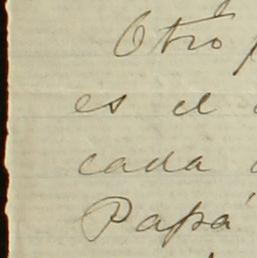 Otro
es el
cada
Papá